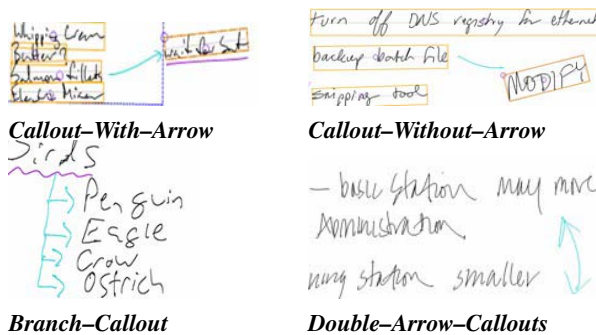 Whipping Cream
Butter?
Salmon fillets
Electric Mixer
wait for Sat
Callout–With–Arrow
turn off DNS registry for ethernet
backup batch file
MODIFY
snipping tool
Callout–Without–Arrow
Birds
Penguin
Eagle
Crow
Ostrich
Branch–Callout
– basic station may move
Administration
ning station smaller
Double–Arrow–Callouts